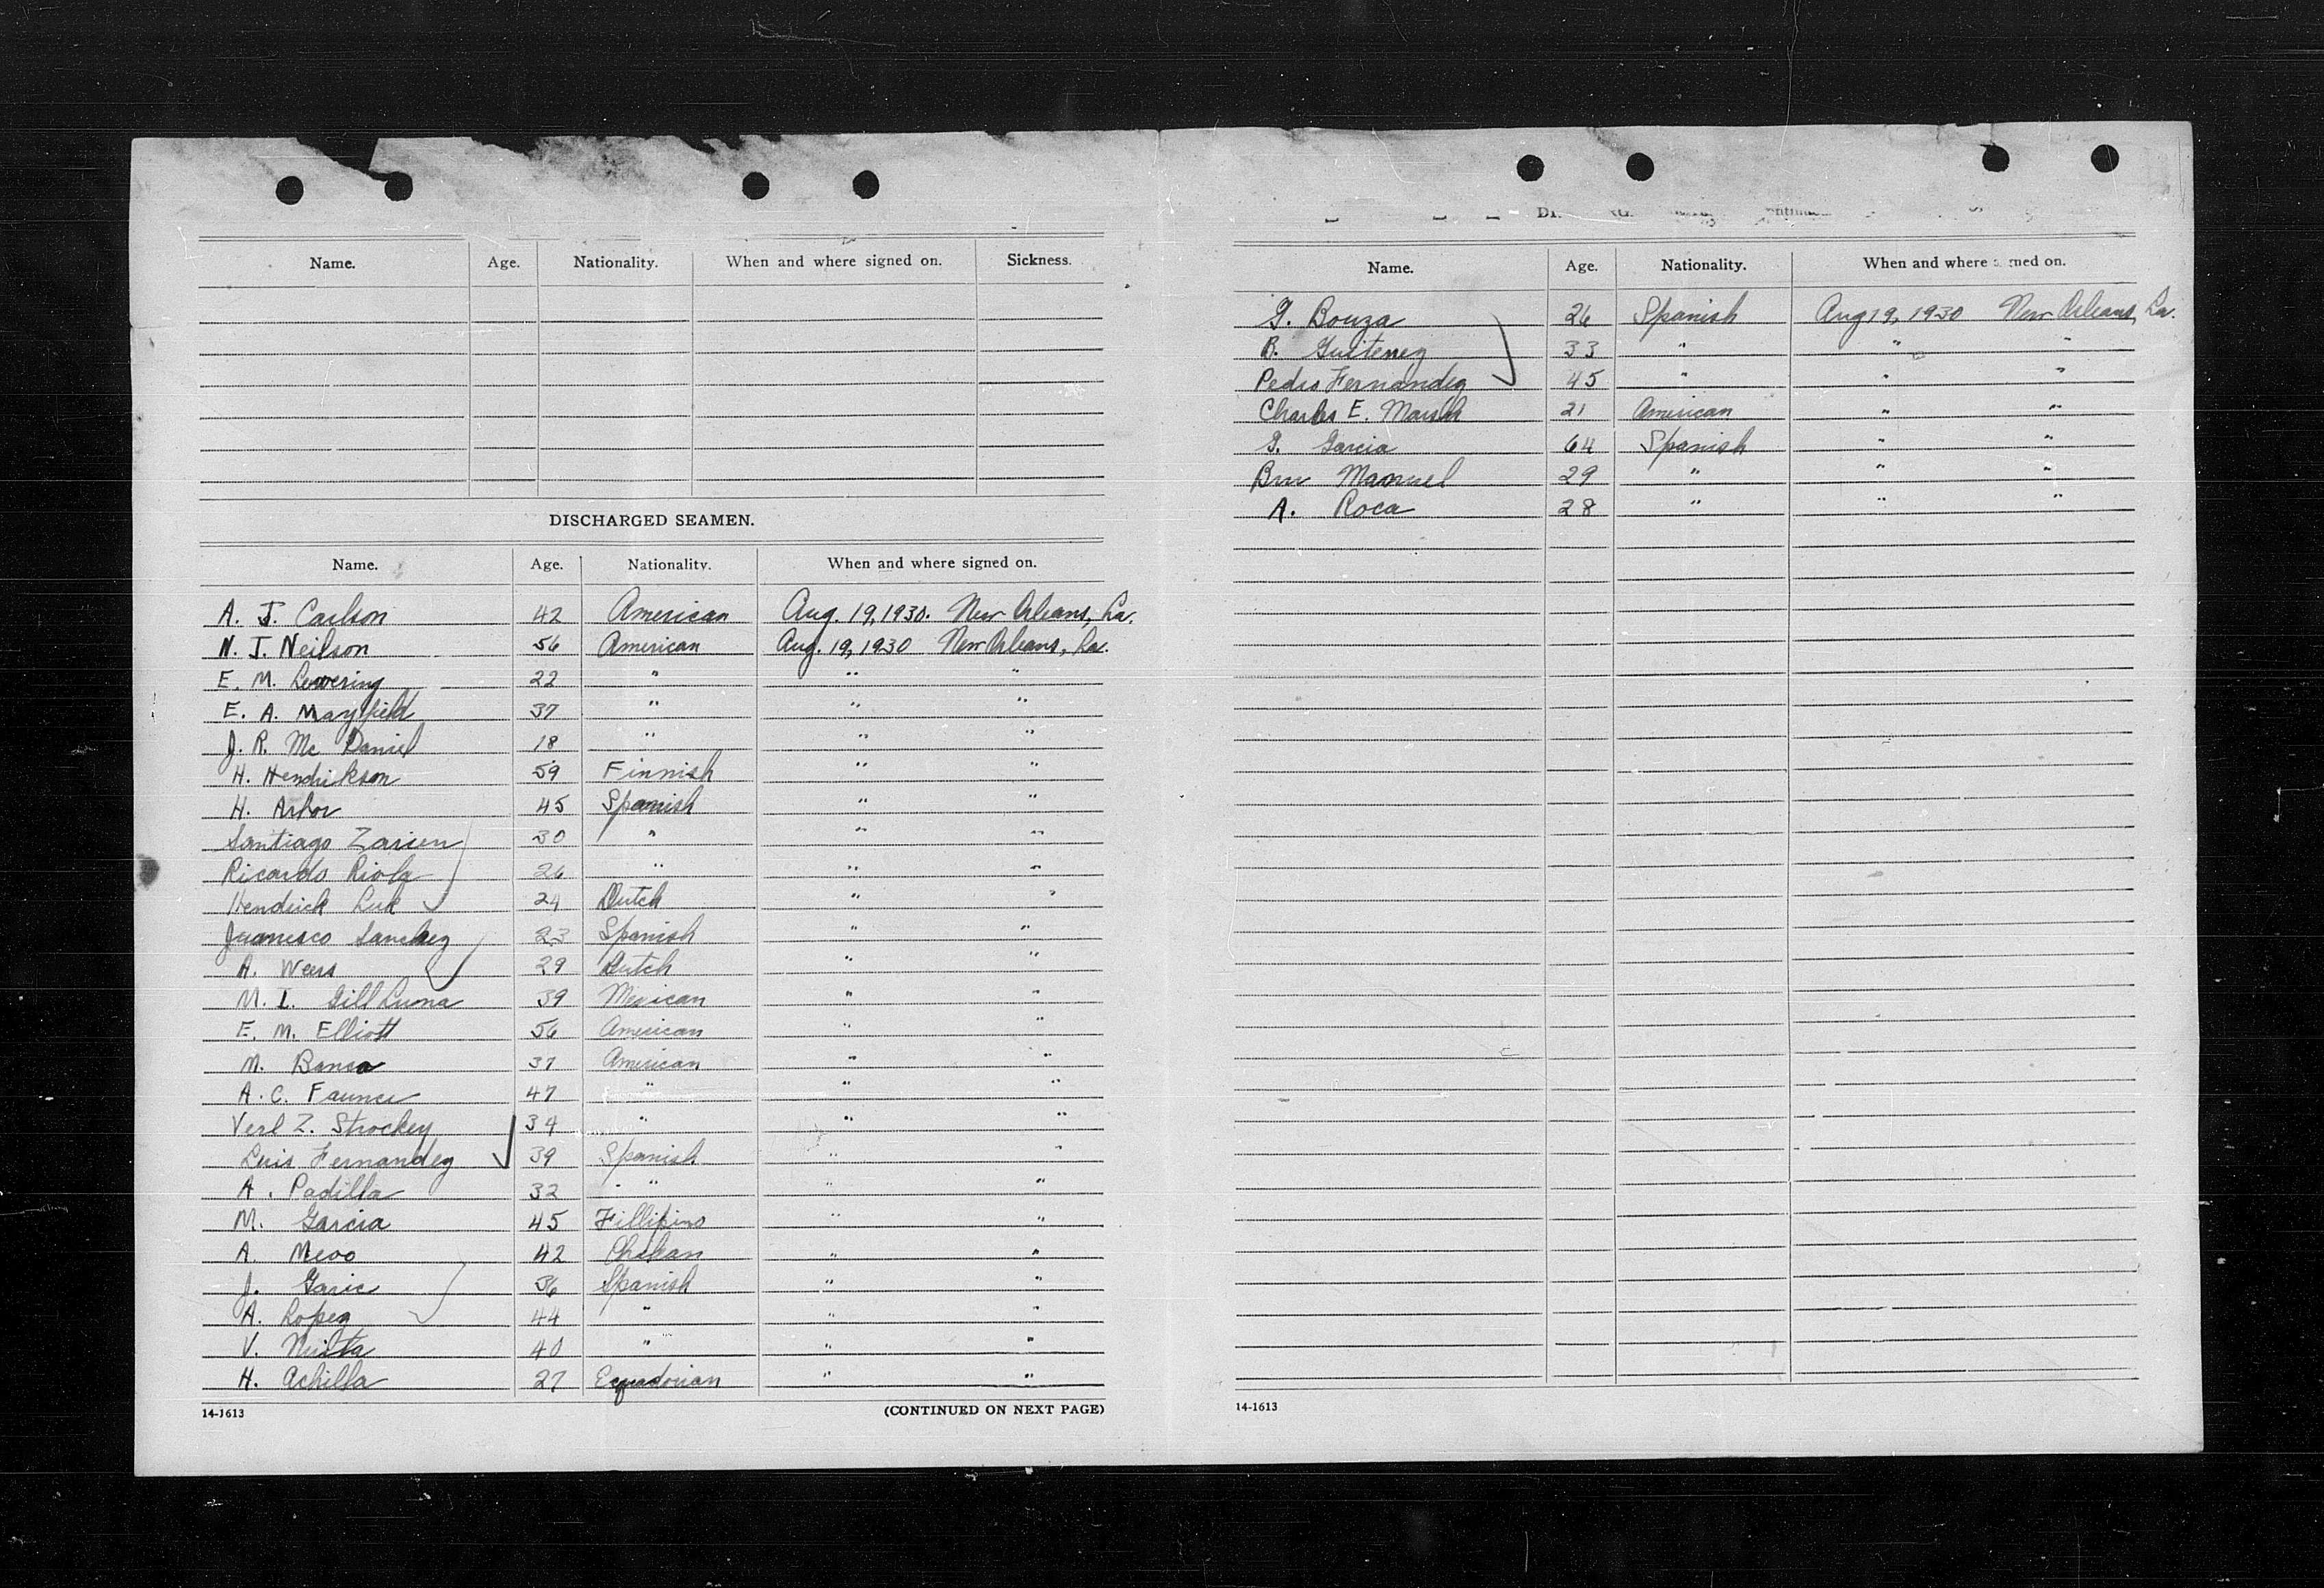 Name. Age. Nationality. When and where signed on. Sickness.
DISCHARGED SEAMEN.
Name. Age. Nationality. When and where signed on.
A. J. Carlson 42 American Aug. 19, 1930. New Orleans, La.
N. J. Neilson 56 American Aug. 19, 1930 New Orleans, La.
E. M. Lowering 22 " " "
E. A. Mayfield 37 " " "
J. R. Mc Daniel 18 " " "
H. Hendrikson 59 Finnish " "
H. Arbor 45 Spanish " "
Santiago Zarien 30 " " "
Ricardo Riola 26 " " "
Hendrick Luk 24 Dutch " "
Juanesco Sanchez 23 Spanish " "
A. Weers 29 Dutch " "
M. I. Gill Luna 39 Mexican " "
E. M. Elliott 56 American " "
M. Banca 37 American " "
A. C. Faunce 47 " " "
Verl Z. Strockey 34 " " "
Luis Fernandez 39 Spanish " "
A. Padilla 32 " " "
M. Garcia 45 Fillipino " "
A. Meoo 42 Chilean " "
J. Garic 36 Spanish " "
A. Lopez 44 " " "
V. 40 " " "
H. Achilla 27 Equadorian " "
14-1613 (CONTINUED ON NEXT PAGE)
Name. Age. Nationality. When and where signed on.
G. Bouza 26 Spanish Aug 19, 1930 New Orleans, La.
B. Guitenez 33 " " "
Pedro Fernandez 45 " " "
Charles E. Marsh 21 American " "
G. Garcia 64 Spanish " "
Manuel 29 " " "
A. Roca 28 " " "
14-1613